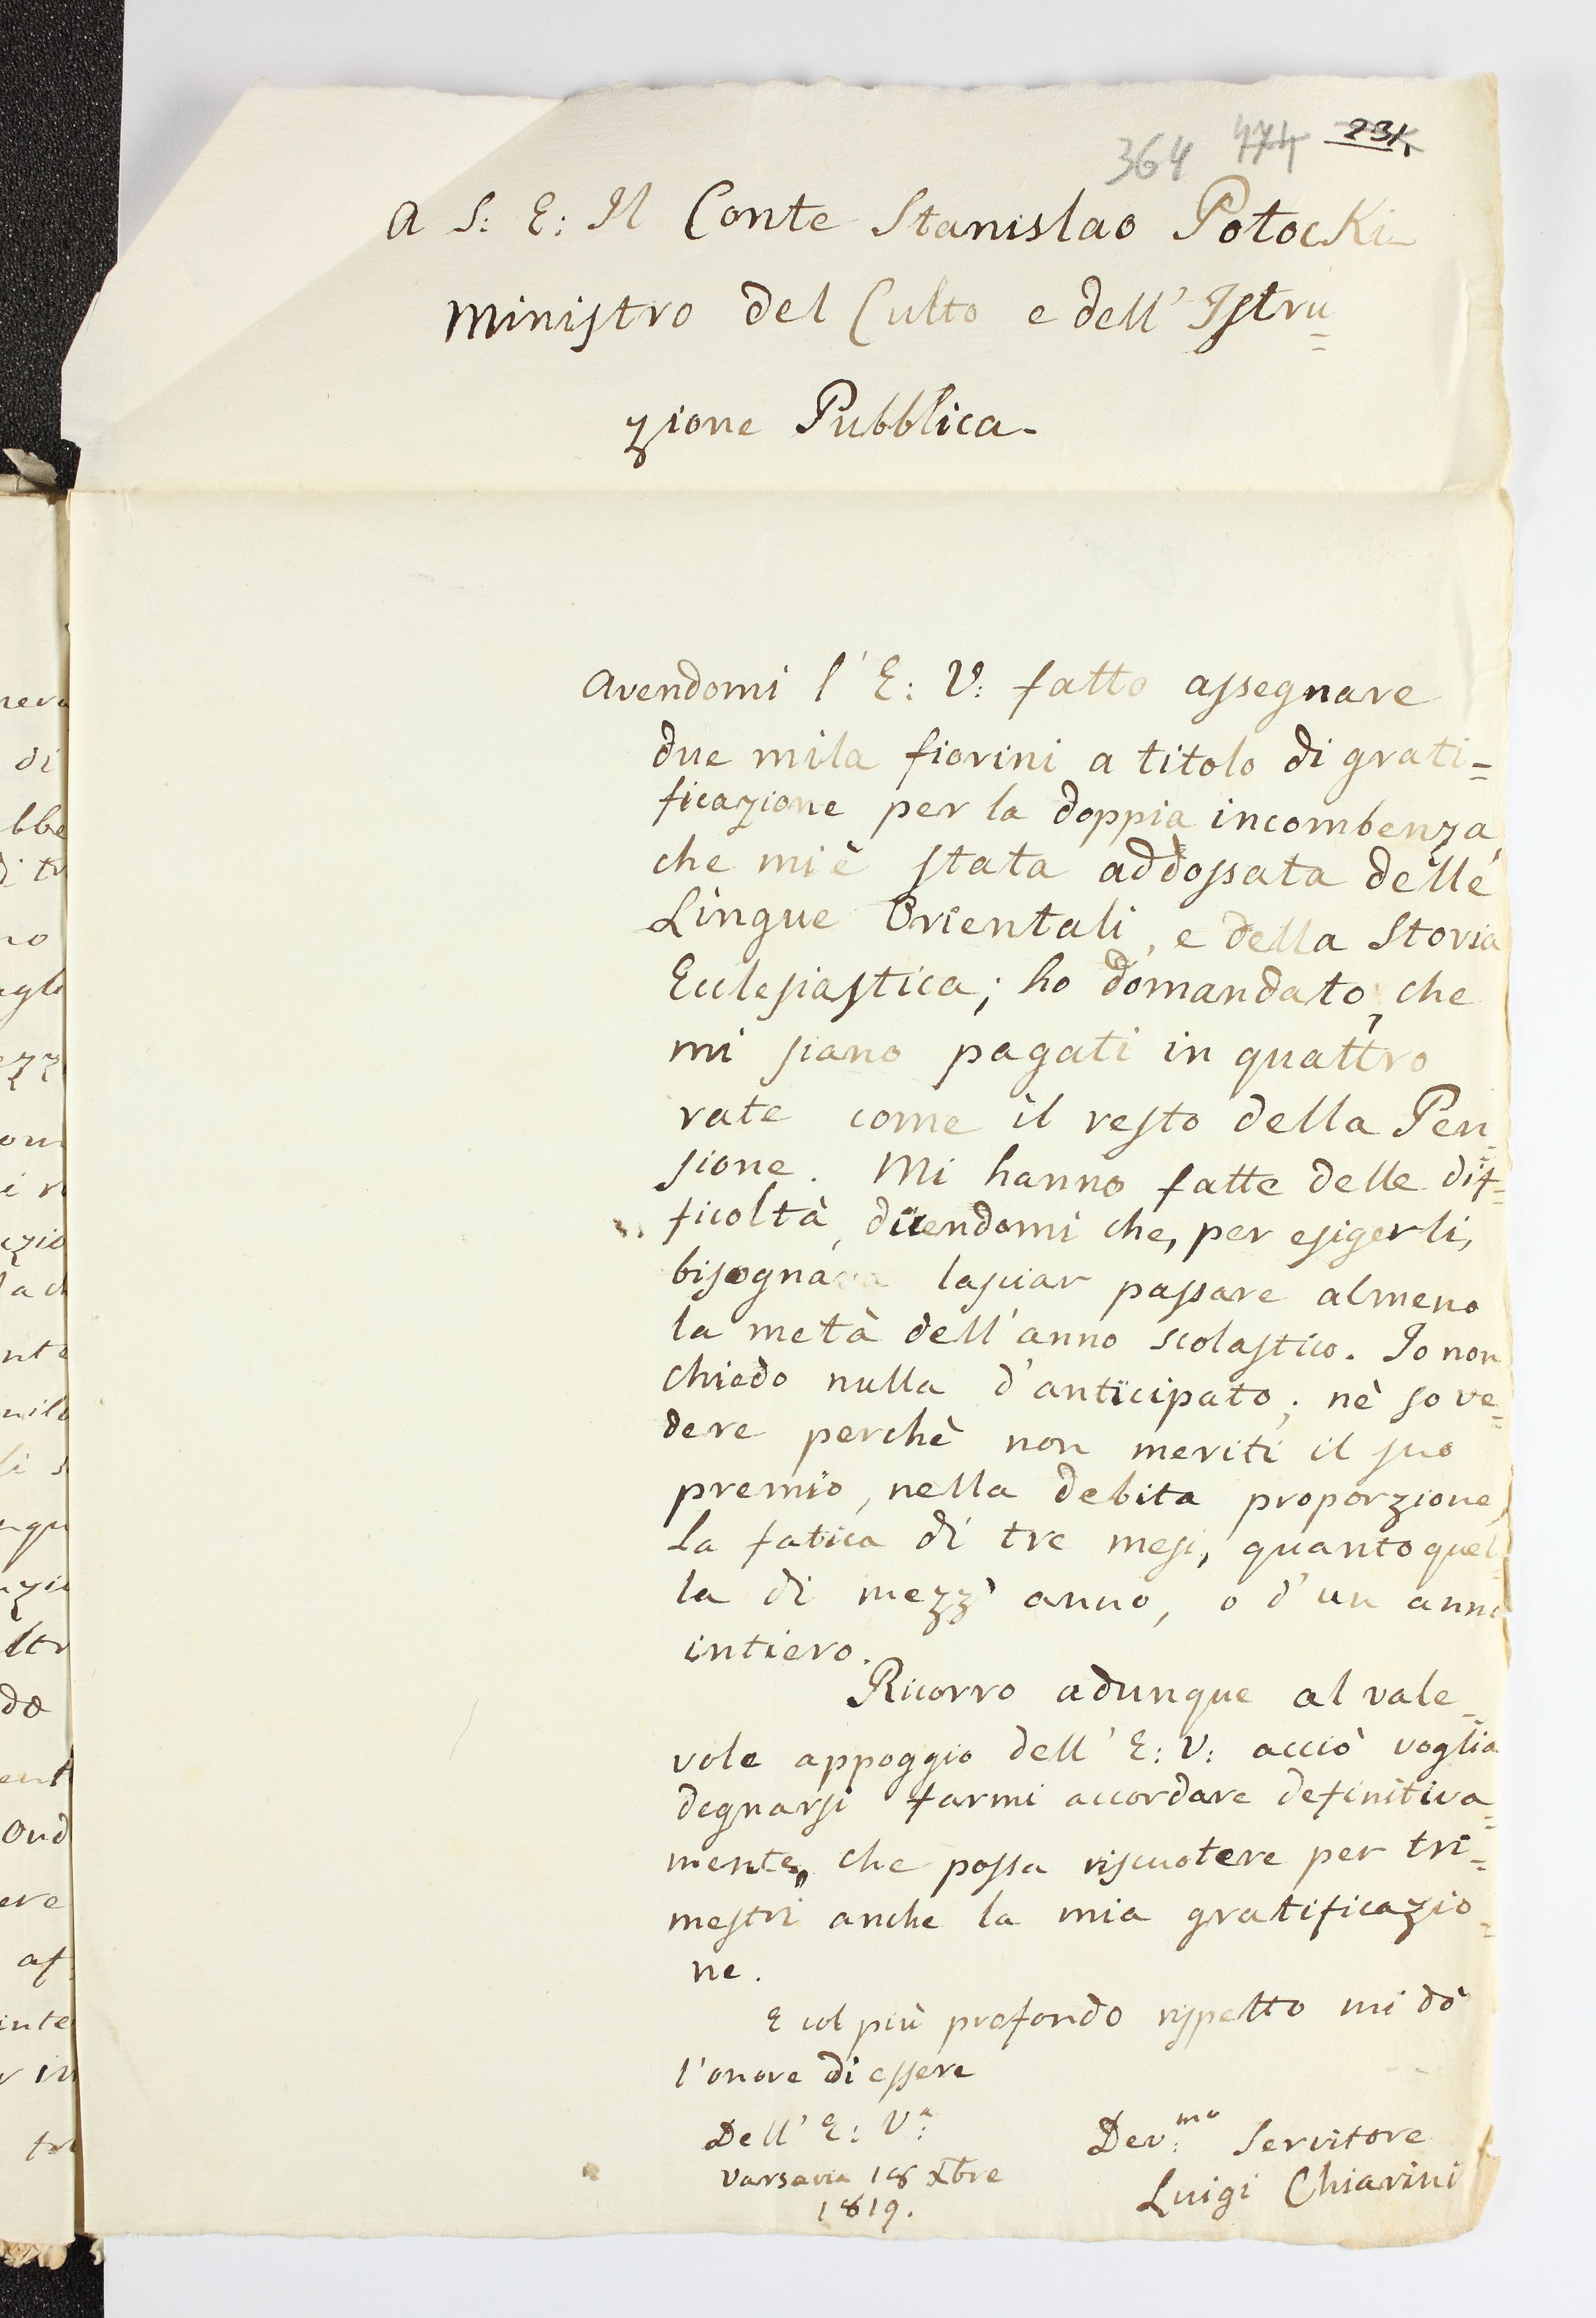 364 474 231
A S: E: Il Conte Stanislao Potocki
Ministro del Culto e dell' Istru=
zione Pubblica.
Avendomi l'E: V: fatto assegnare
due mila fiorini a titolo di grati=
ficazione per la doppia incombenza,
che mi è stata addossata delle
Lingue Orientali, e della Storia
Ecclesiastica; ho domandato, che
mi siano pagati in quattro
rate come il resto della Pen=
sione. Mi hanno fatte delle dif=
ficoltà, dicendomi che, per esigerli,
bisognava lasciar passare almeno
la metà dell'anno scolastico. Io non
chiedo nulla d'anticipato; nè so ve=
dere perchè non meriti il suo
premio, nella debita proporzione,
la fatica di tre mesi, quanto quel=
la di mezz' anno, o d'un anno
intiero.
Ricorro adunque al vale=
vole appoggio dell' E: V: acciò voglia
degnarsi farmi accordare definitiva=
mente, che possa riscuotere per tri=
mestri anche la mia gratificazio=
ne.
E col più profondo rispetto mi dò
l'onore di essere
Dell' E: Vª:
Dev:mo Servitore
Varsavia 18 Xbre
Luigi Chiarini
1819.
nera
di
bbe
di tr
no
agli
ezz
om
i n
azio
la ch
nte
mila
li s
ngu
nzi
ltr
do
ent
ond
ere
af
inte
r in
tot